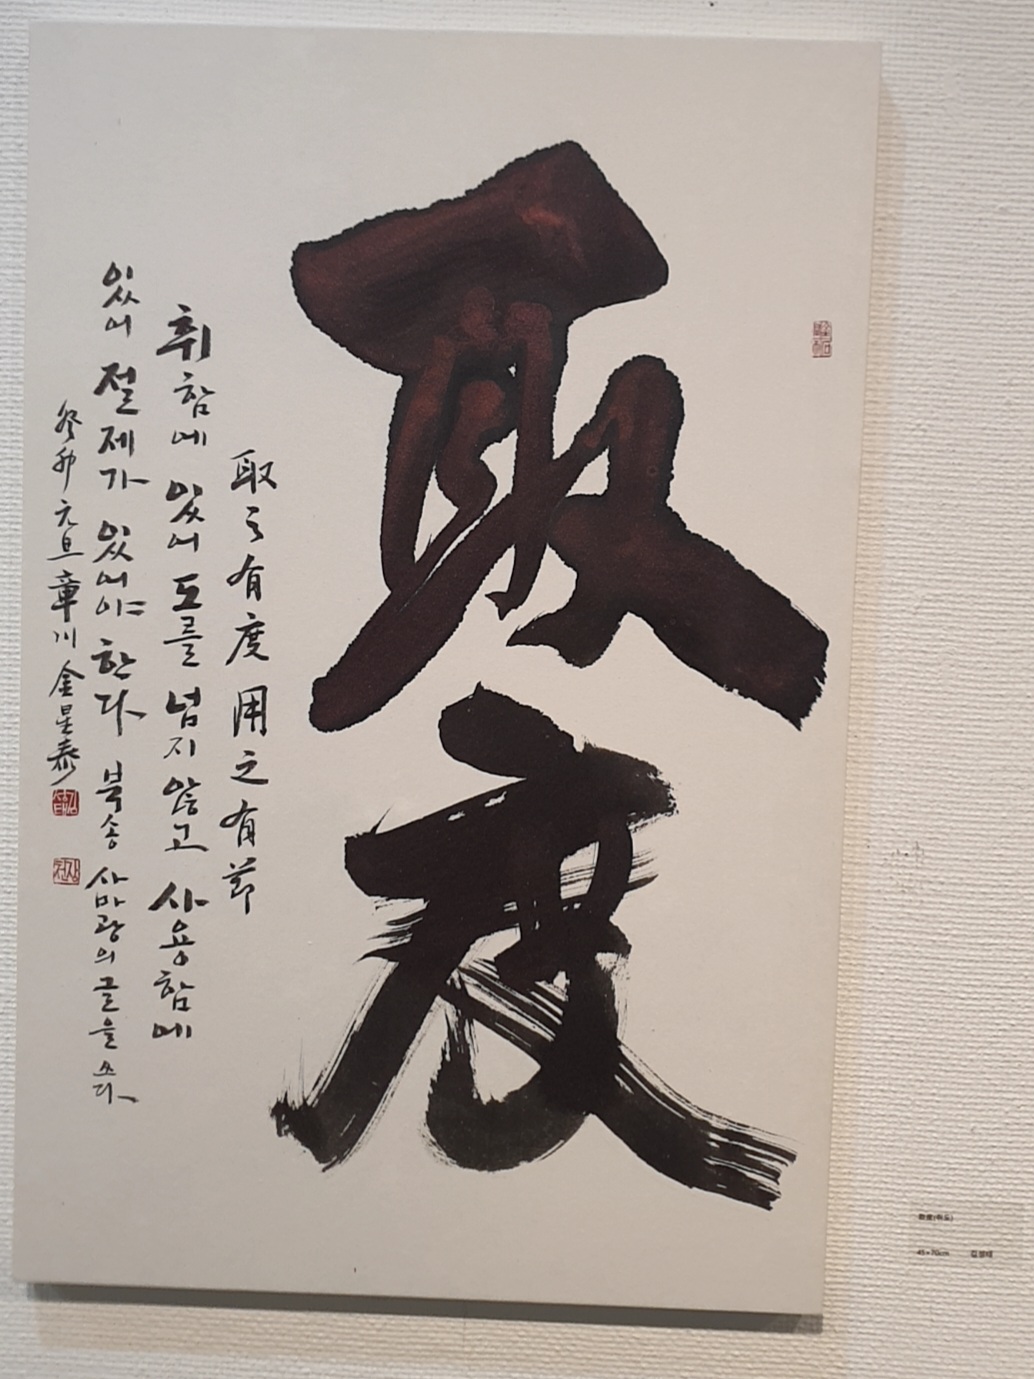 取度
取之有度用之有節
취함에 있어 도를 넘지 않고 사용함에
있어 절제가 있어야 한다 북송 사마광의 글을 쓰다
癸卯元旦 章川 金星泰
取度(취도)
45×70cm 김성태